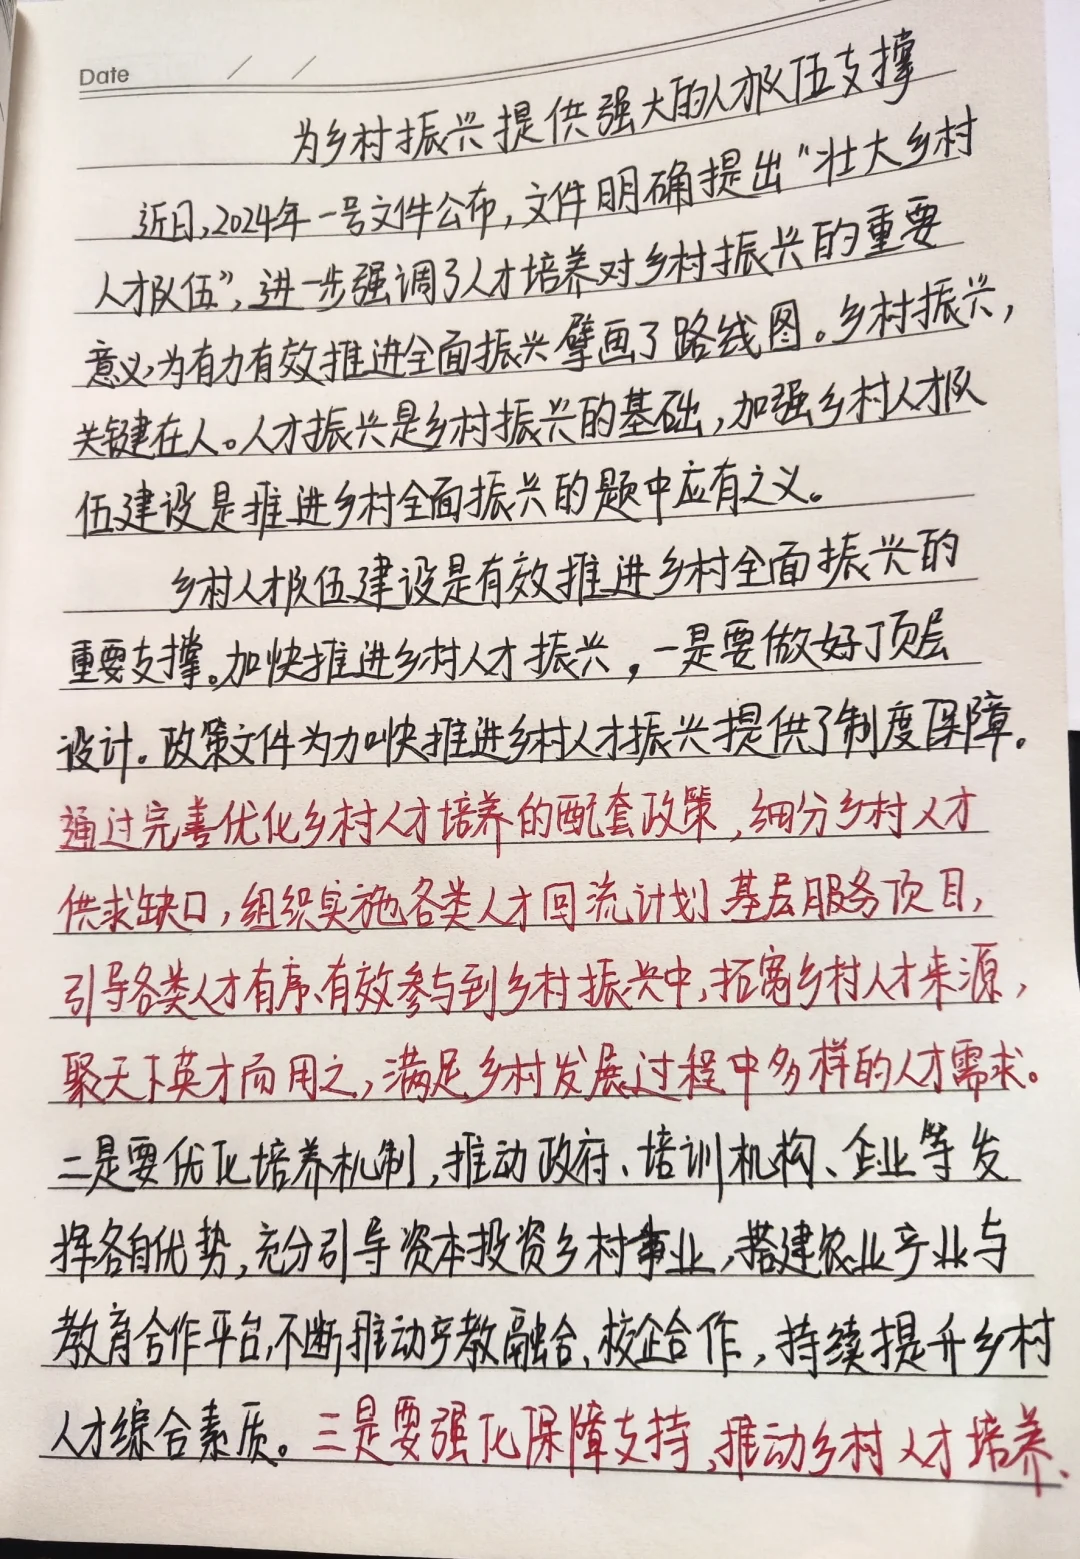 Date / /
为乡村振兴提供强大的人才队伍支撑
近日,2024年一号文件公布,文件明确提出“壮大乡村
人才队伍”,进一步强调了人才培养对乡村振兴的重要
意义,为有力有效推进全面振兴擘画了路线图。乡村振兴,
关键在人。人才振兴是乡村振兴的基础,加强乡村人才队
伍建设是推进乡村全面振兴的题中应有之义。
乡村人才队伍建设是有效推进乡村全面振兴的
重要支撑。加快推进乡村人才振兴,一是要做好顶层
设计。政策文件为加快推进乡村人才振兴提供了制度保障。
通过完善优化乡村人才培养的配套政策,细分乡村人才
供求缺口,组织实施各类人才回流计划基层服务项目,
引导各类人才有序、有效参与到乡村振兴中,拓宽乡村人才来源,
聚天下英才而用之,满足乡村发展过程中多样的人才需求。
二是要优化培养机制,推动政府、培训机构、企业等发
挥各自优势,充分引导资本投资乡村事业,搭建农业产业与
教育合作平台,不断推动产教融合、校企合作,持续提升乡村
人才综合素质。三是要强化保障支持,推动乡村人才培养、